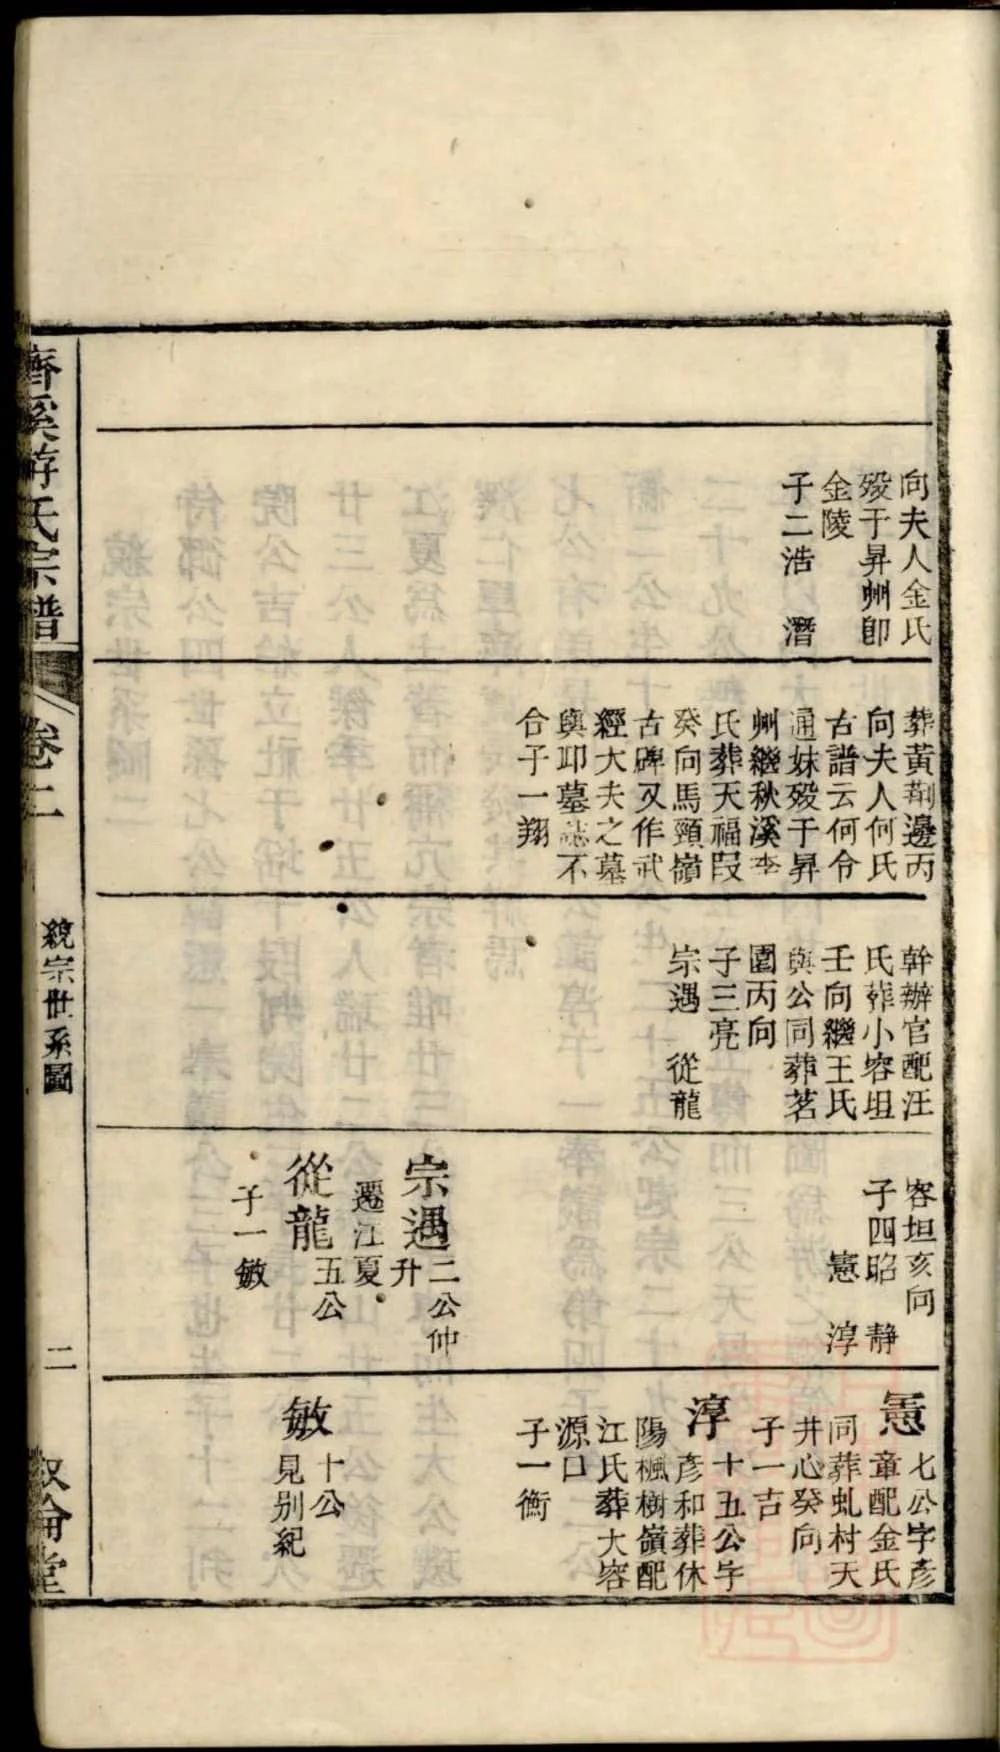 向夫人金氏
歿于昇州卽
金陵
子二浩 潛
葬黃荆邊丙
向夫人何氏
古譜云何令
通妹歿于昇
州繼秋溪李
氏葬天福段
癸向馬頸嶺
古碑又作武
經大夫之墓
與邛墓誌不
合子一翔
幹辦官配汪
氏葬小容坦
壬向繼王氏
與公同葬茗
園丙向
子三亮
宗遇 從龍
容坦亥向
子四昭 靜
憲 淳
宗遇
二公仲
升
遷江夏
從龍
五公
子一敏
憲
七公字彥
章配金氏
同葬虬村天
井心癸向
子一吉
淳
十五公字
彥和葬休
陽楓樹嶺配
江氏葬大容
源口
子一衡
敏
十公
見别紀
濟溪游氏宗譜
卷二
統宗世系圖
二
敘倫堂